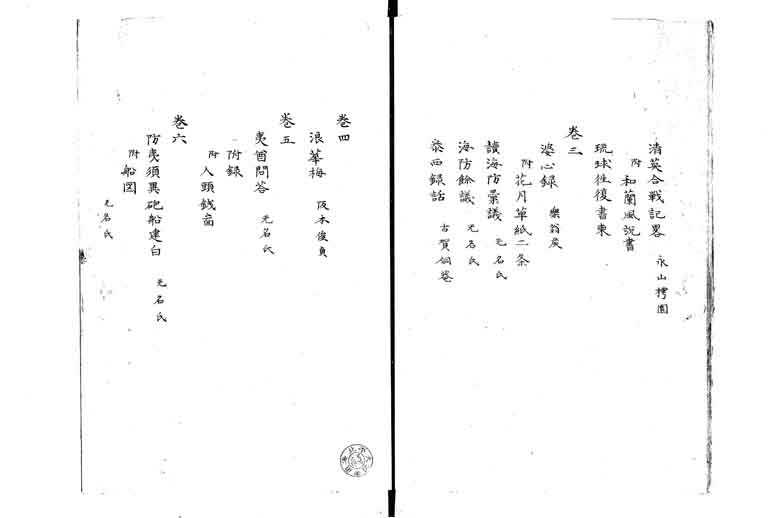 清英合戦記畧 永山樗園
附和蘭風説書
琉球往復書東
巻三
婆心録 樂翁矣
附花月草紙二条
讀海防彙議 无名氏
海防餘議 无名氏
泰西録話 古賀侗菴
巻四
浪華梅 阪本俊貞
巻五
夷酋問答 无名氏
附録
附人頭銭啚
巻六
防夷須異砲船建白 无名氏
附船図 无名氏